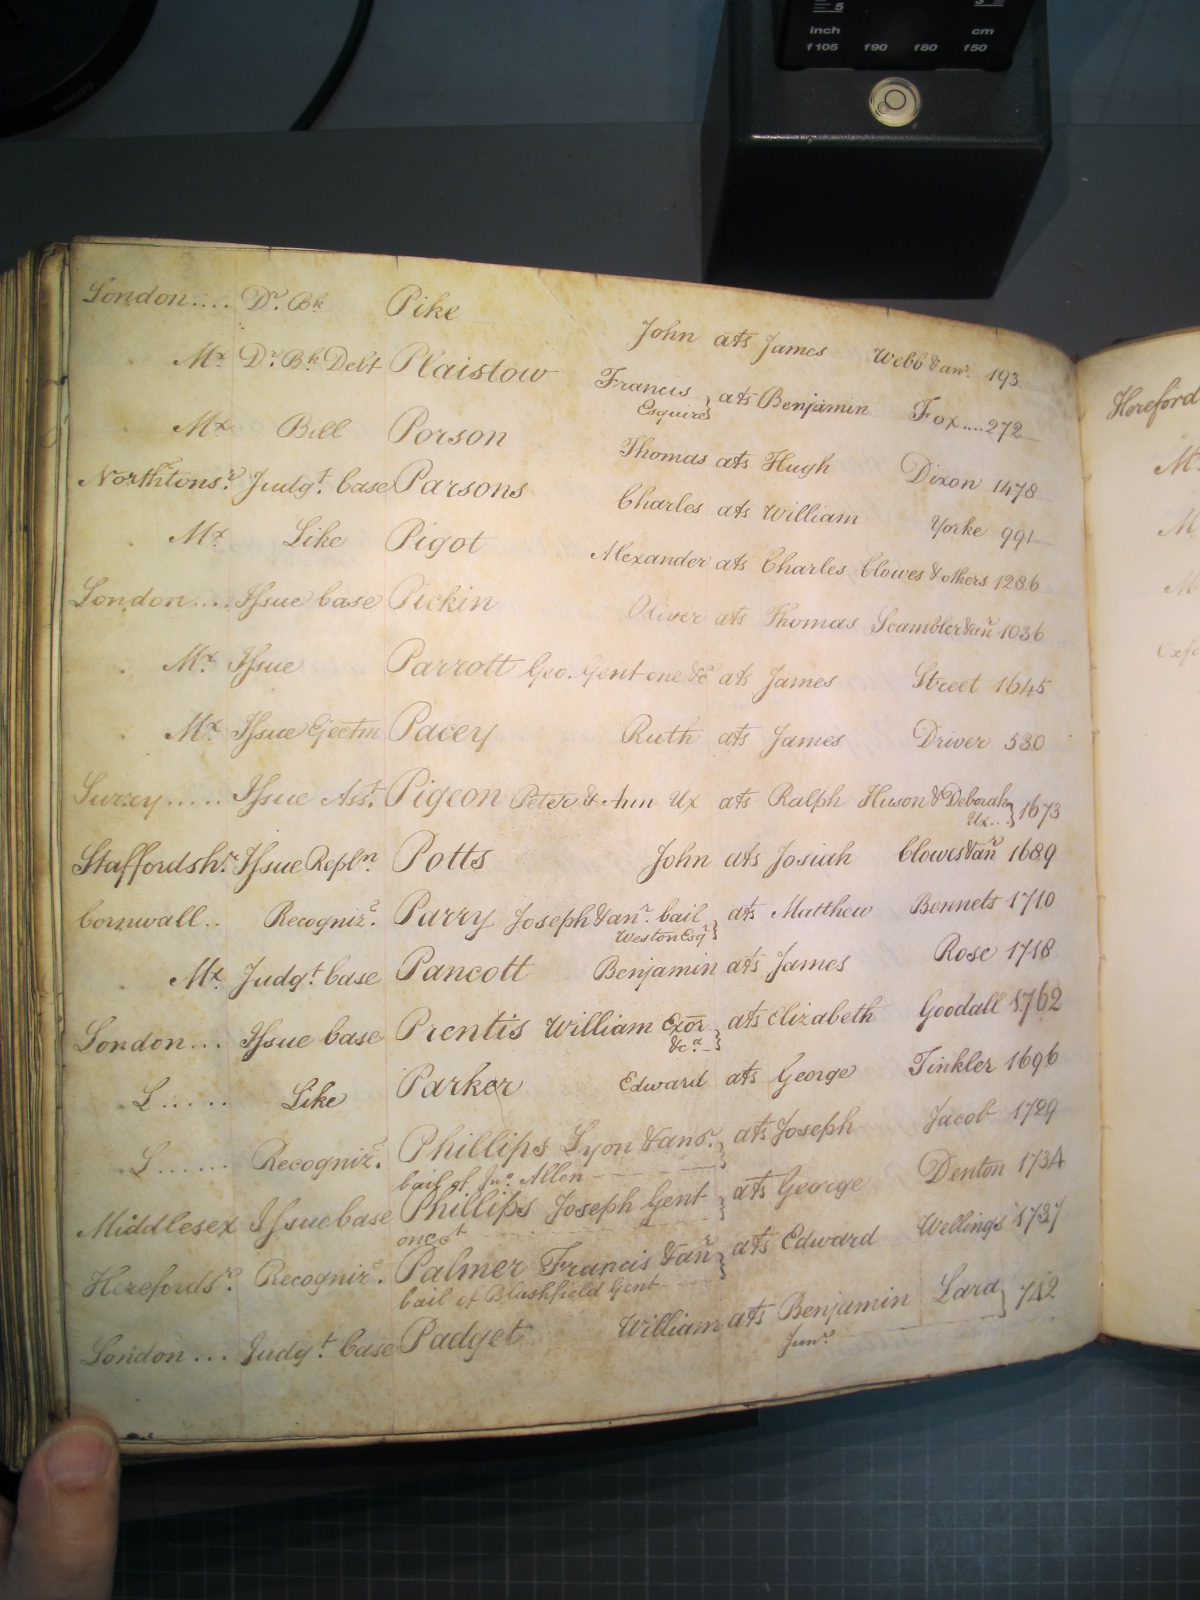 5
inch cm
f105 f90 f80 f50
PHILIPS
London.... Dr. Bk Pike John ats James Webb & anr. 193
Mx Dr. Bk Debt Plaistow Francis Esquire } ats Benjamin Fox....272
Mx Bill Porson Thomas ats Hugh Dixon 1478
Northtons.r Judgt. base Parsons Charles ats William Yorke 991
Mx Like Pigot Alexander ats Charles Clowes & others 1286
London.... Issue base Pickin Oliver ats Thomas Scambler & anr 1036
Mx Issue Parrott Geo. Gent one &c ats James Street 1645
Mx Issue Ejectm Pacey Ruth ats James Driver 530
Surrey..... Issue Asst. Pigeon Peter & Ann Ux ats Ralph Huson & Deborah Ux.. } 1673
Staffordshr. Issue Repln. Potts John ats Josiah Clowes & anr 1689
Cornwall.. Recognizr. Parry Joseph & anr. bail Weston Esqr } ats Matthew Bennets 1710
Mx Judgt. base Pancott Benjamin ats James Rose 1718
London... Issue base Prentis William Exor &ca. } ats Elizabeth Goodall 1762
L..... Like Parker Edward ats George Tinkler 1696
L...... Recognizr. Phillips Lyon & anor. } ats Joseph Jacob 1729
bail of Jno. Allen
Middlesex Issue base Phillips Joseph Gent } ats George Denton 1734
one &c
Herefordsr. Recognizr. Palmer Francis & anr } ats Edward Wellings 1737
bail of Blashfield Gent
London... Judgt. base Padget William ats Benjamin Lard } 742
Junr.
Hereford
Mx
M
M
Oxfo